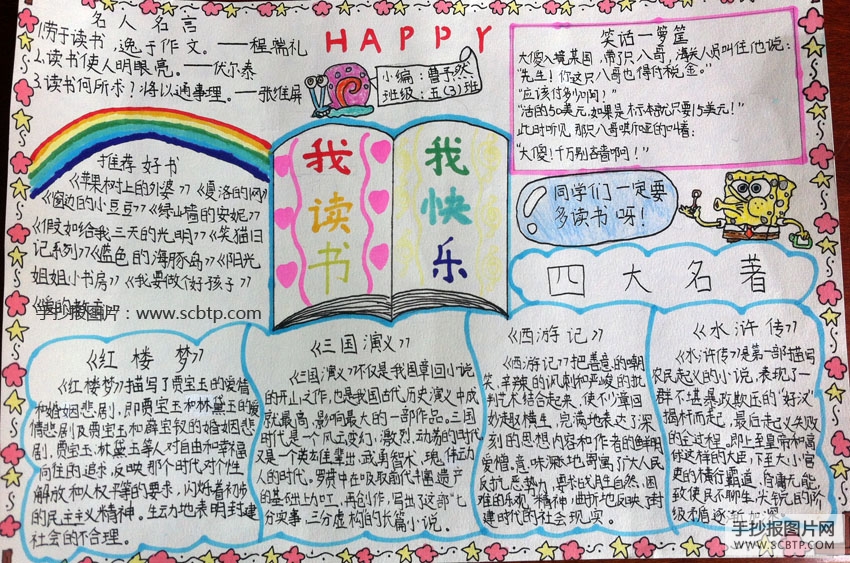 名人名言
1.劳于读书,逸于作文。——程端礼
2.读书使人明眼亮。——伏尔泰
3.读书何所求?将以通事理。——张维屏
HAPPY
小编:曾予然
班级:五(3)班
笑话一箩筐
大傻入境某国,带了只八哥,海关人员叫住他说:
"先生!你这只八哥也得付税金。"
"应该付多少啊?"
"活的50美元,如果是标本就只要15美元!"
此时听见那只八哥嘶哑的叫着:
"大傻!千万别吝啬啊!"
推荐好书
《苹果树上的外婆》《夏洛的网》
《窗边的小豆豆》《绿山墙的安妮》
《假如给我三天的光明》《笑猫日
记系列》《蓝色的海豚岛》《阳光
姐姐小书房》《我要做个好孩子》
《爱的教育》
手抄报图片:www.scbtp.com
我读书
我快乐
同学们一定要
多读书呀!
四大名著
《红楼梦》
《红楼梦》描写了贾宝玉的爱情
和婚姻悲剧,即贾宝玉和林黛玉的爱
情悲剧及贾宝玉和薛宝钗的婚姻悲
剧,贾宝玉、林黛玉等人对自由和幸福
向往的追求,反映那个时代对个性
解放和人权平等的要求,闪烁着初步
的民主主义精神。生动地表明封建
社会的不合理。
《三国演义》
《三国演义》不仅是我国章回小说
的开山之作,也是我国古代历史演义中成
就最高,影响最大的一部作品。三国
时代是一个风云变幻,激烈,动荡的时代
又是一个英雄辈出,武勇智术,瑰伟动
人的时代。罗贯中在吸取前代丰富遗产
的基础上加工,再创作,写出了这部"七
分实事,三分虚构"的长篇小说。
《西游记》
《西游记》把善意的嘲
笑,辛辣的讽刺和严峻的批
判艺术结合起来,使不少章回
妙趣横生,完满地表达了深
刻的思想内容和作者的鲜明
爱憎。意味深长地寄寓了广大人民
反抗恶势力,要求战胜自然,困
难的乐观精神,曲折地反映了封
建时代的社会现实。
《水浒传》
《水浒传》是第一部描写
农民起义的小说,表现了一
群不堪暴政欺压的"好汉"
揭杆而起,最后走义失败
的全过程。即上至皇帝和高
俅这样的大臣,下至大小官
吏的横行霸道,昏庸无能,
致使民不聊生,尖锐的阶
级矛盾逐渐
手抄报图片网
WWW.SCBTP.COM